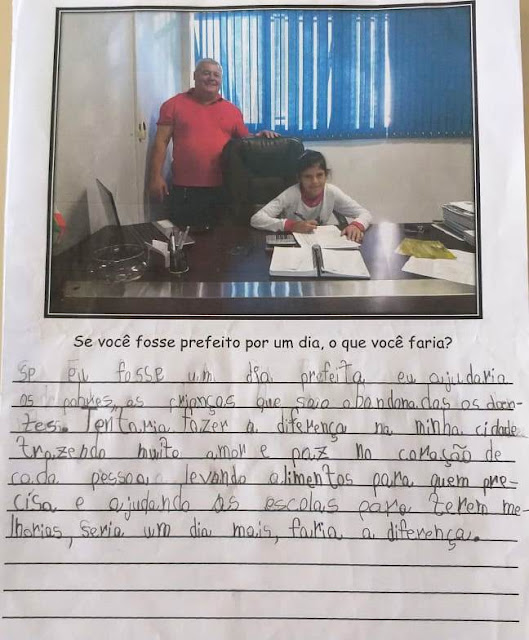 Se você fosse prefeito por um dia, o que você faria?
Se eu fosse um dia prefeita, eu ajudaria
os pobres, as crianças que são abandonadas os doen-
tes. Tentaria fazer a diferença na minha cidade
trazendo muito amor e paz no coração de
cada pessoa, levando alimentos para quem pre-
cisa e ajudando as escolas para terem me-
lhorias, seria um dia mais, faria a diferença.